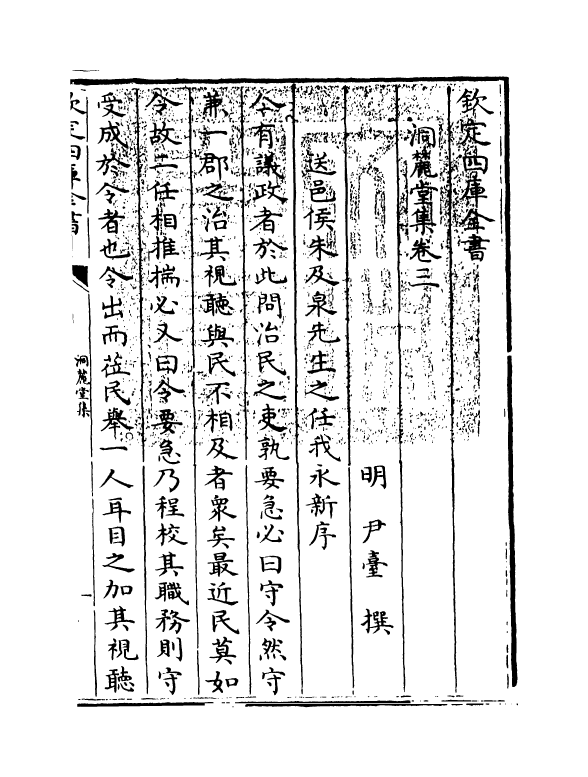 欽定四庫全書
洞麓堂集卷二
明 尹臺 撰
送邑侯朱及泉先生之任我永新序
今有議政者於此問治民之吏孰要急必曰守令然守
兼一郡之治其視聽與民不相及者衆矣最近民莫如
令故二任相推揣必又曰令要急乃程校其職務則守
受成於令者也令出而蒞民舉一人耳目之加其視聽
欽定四庫全書
洞麓堂集
一